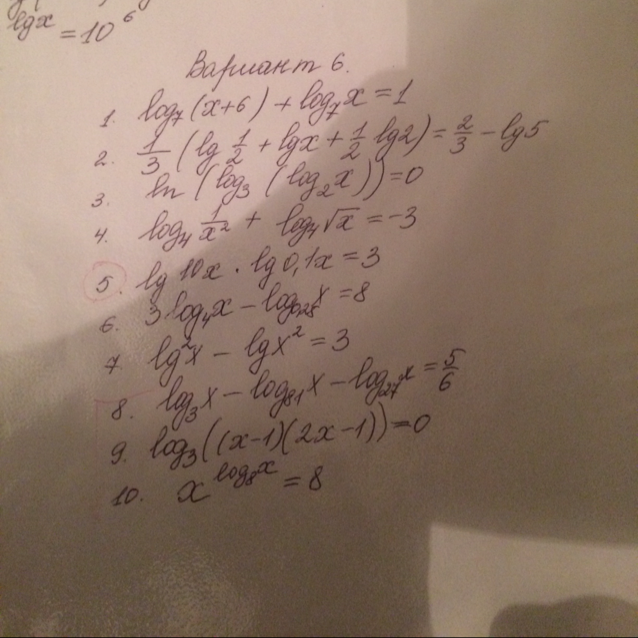 lg x = 10⁶
Вариант 6.
1. log₇(x+6) + log₇x = 1
2. 1/3 (lg 1/2 + lg x + 1/2 lg 2) = 2/3 - lg 5
3. ln (log₃ (log₂x)) = 0
4. log₄ 1/x² + log₄ √x = -3
5. lg 10x · lg 0,1x = 3
6. 3 log₄x - log₀,₂₅x = 8
7. lg²x - lg x² = 3
8. log₃x - log₈₁x - log₂₇x = 5/6
9. log₃((x-1)(2x-1)) = 0
10. x^(log₈x) = 8